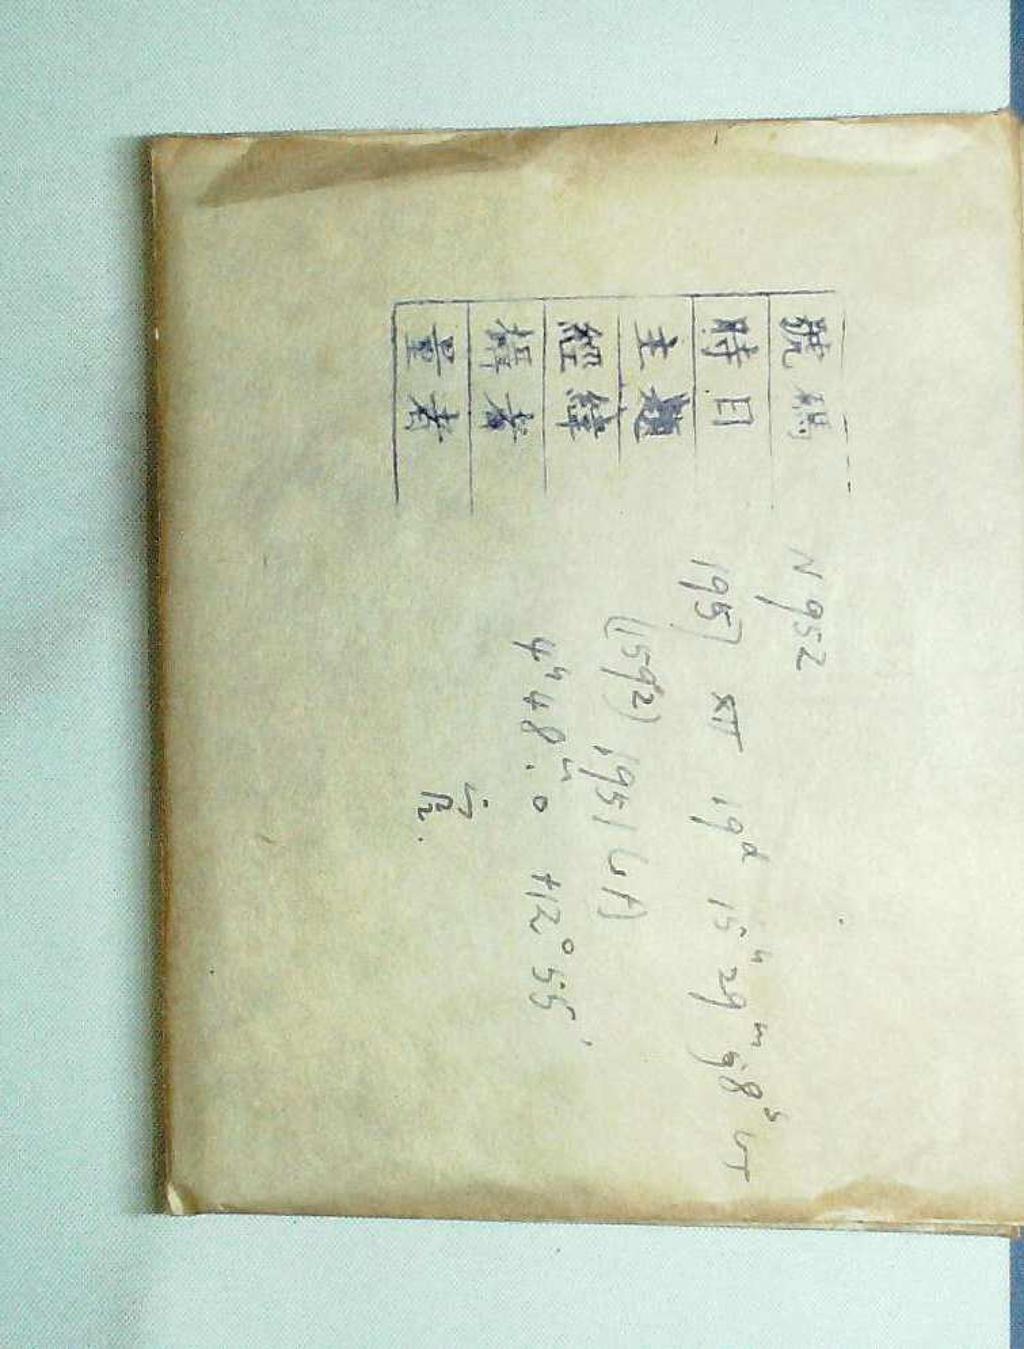 號碼 N952
時日 1957 XII 19d 15h 29m 58s UT
主題 (1592) 1951 LA
經緯 4h 48m.0 +12° 55'
攝者
量者